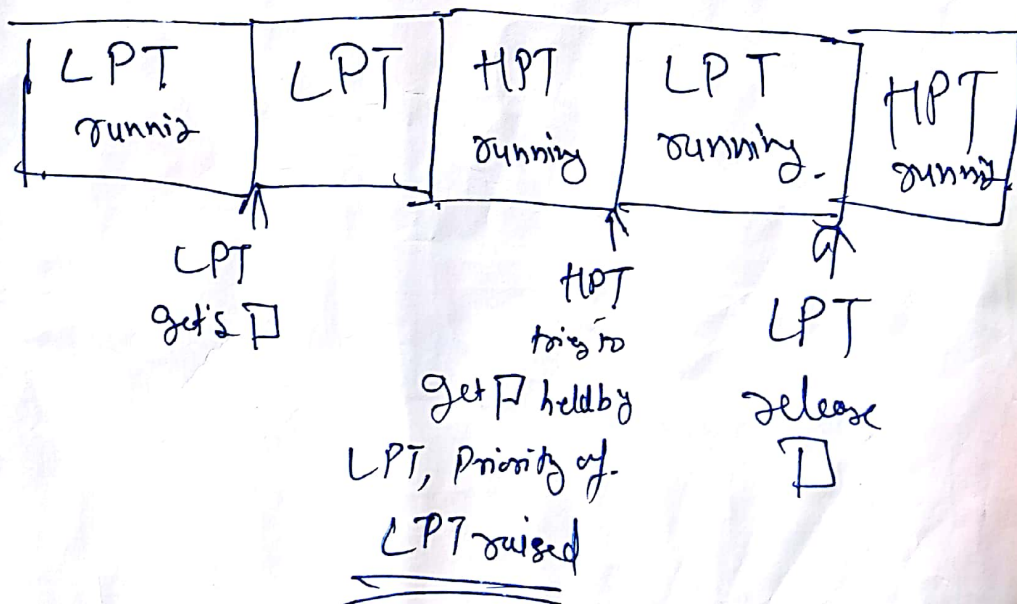 LPT
runnig
LPT
HPT
running
LPT
running.
HPT
runnig
LPT
get's
HPT
tries to
get held by
LPT, Priority of.
LPT raised
LPT
release